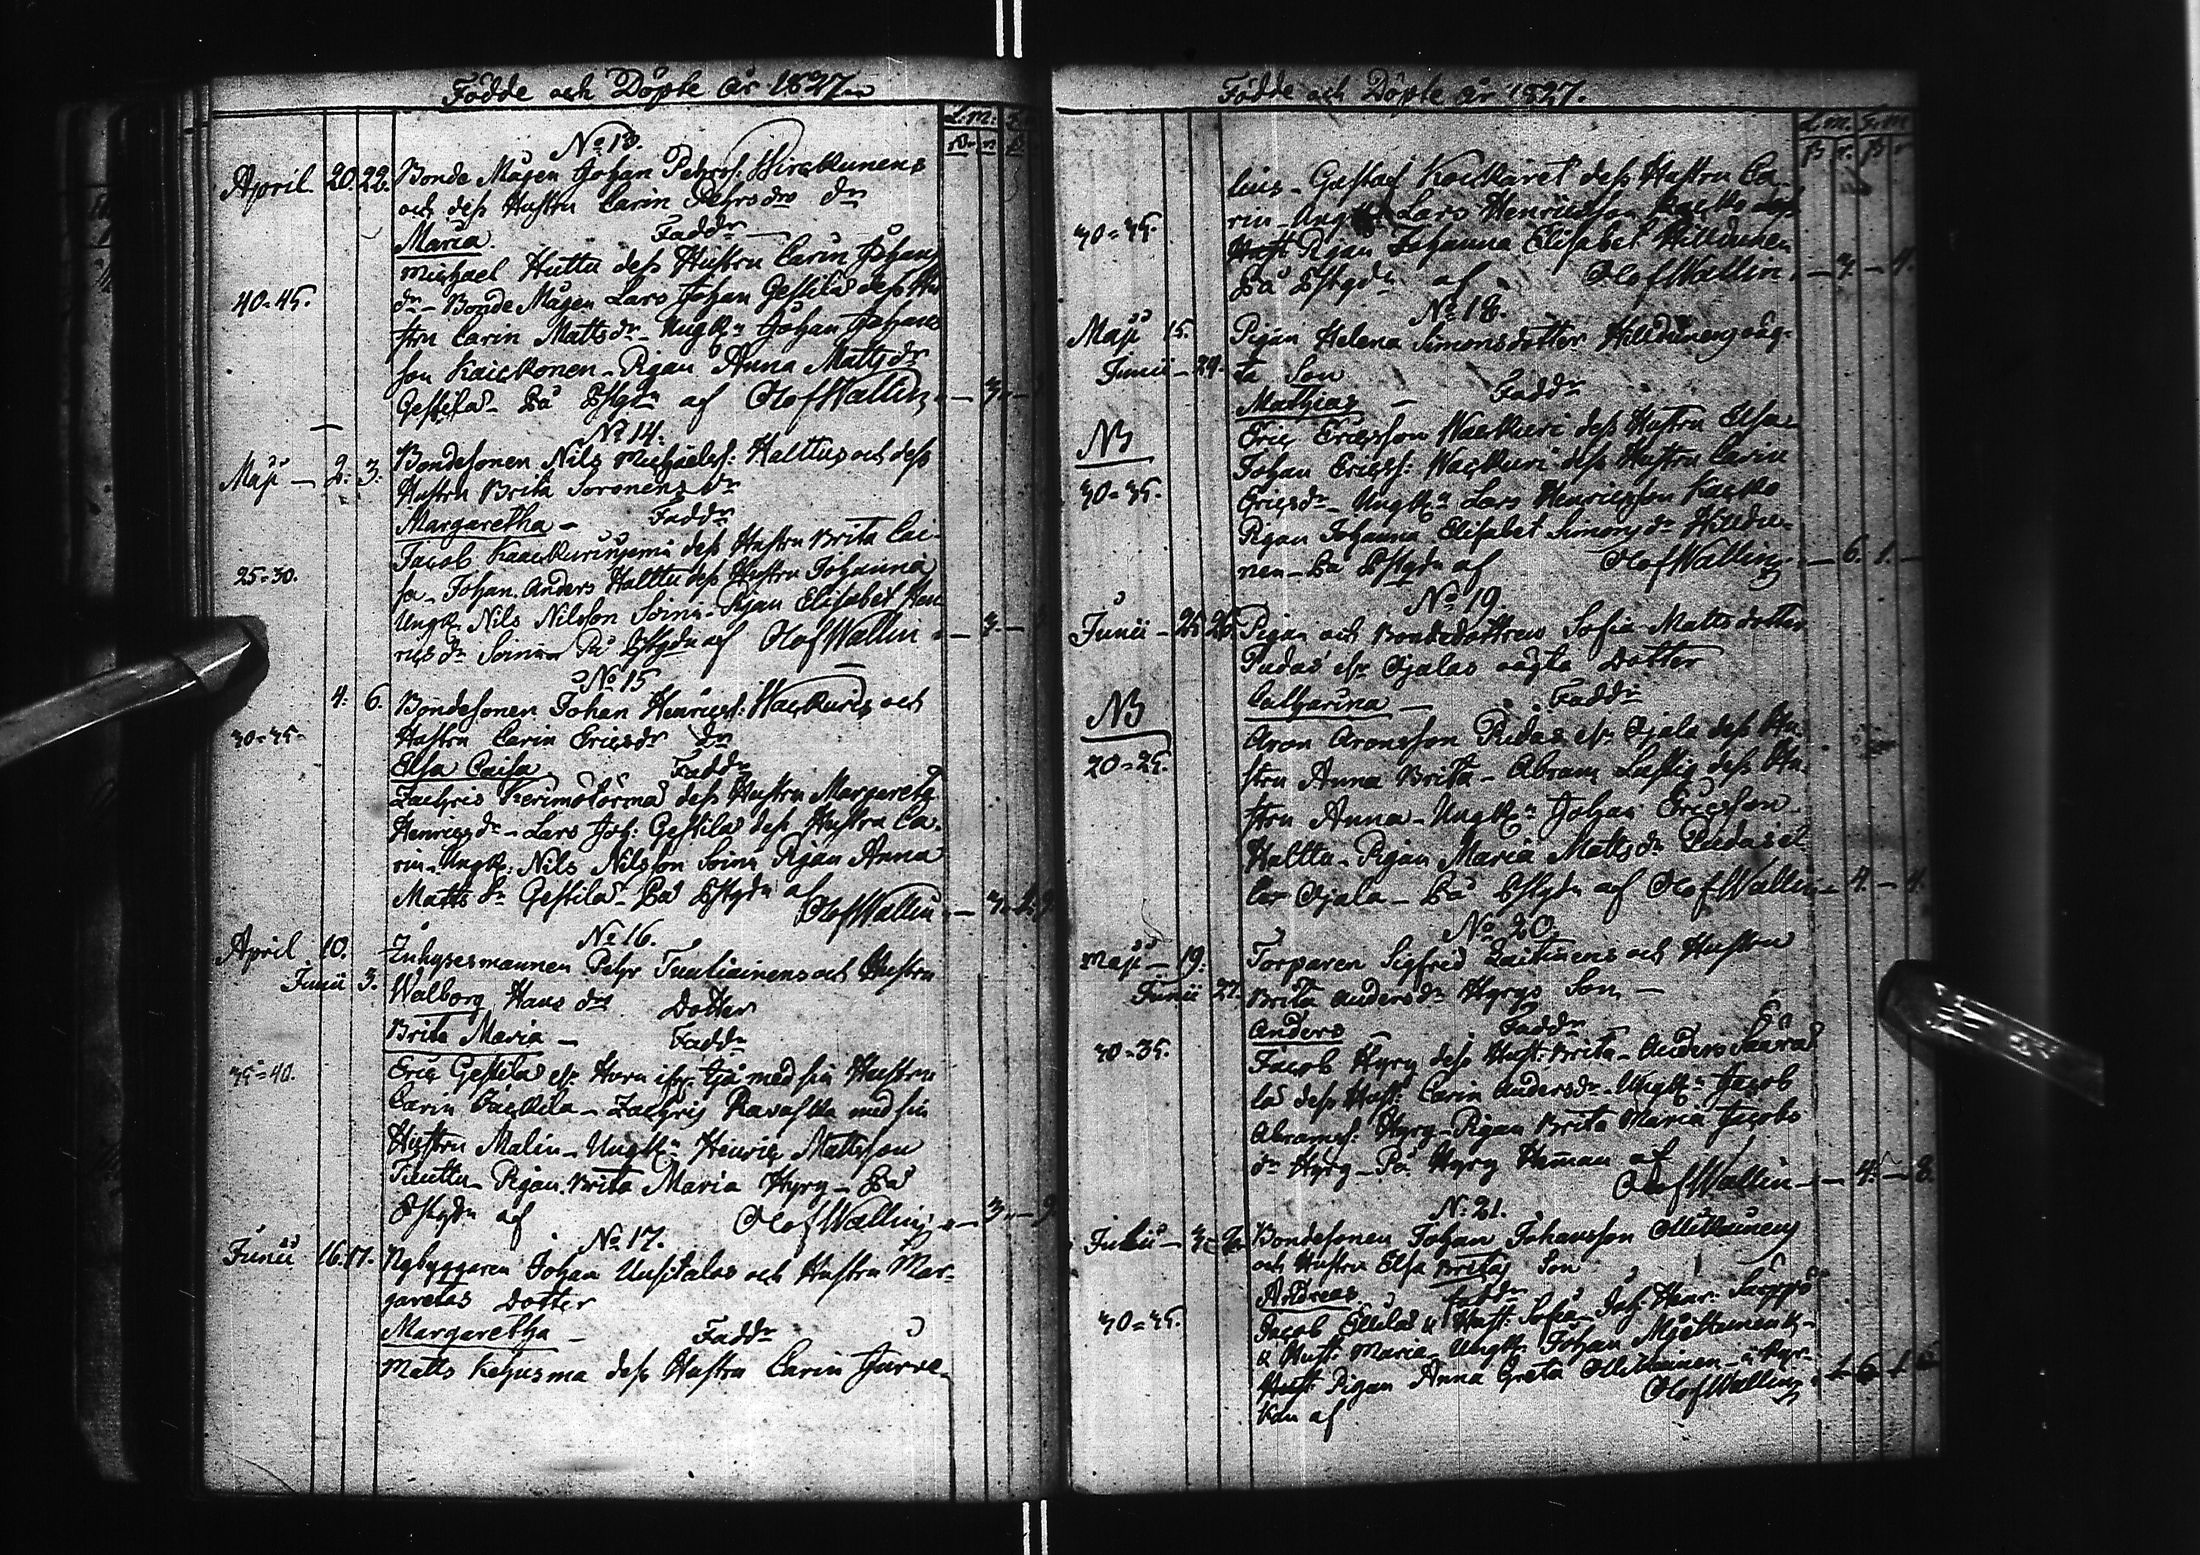 Födde och Döpte år 1827.
L.m.
No 13.
April 20. 22. Bonde Mågen Johan Pehrss.
och dess Hustru Carin Pehrsdr dr
Maria Faddr
40-45. Michael Huttu dess Hustru Carin Johans
dr - Bonde Mågen Lars Johan Gestilas dess Hu
stru Carin Mattsdr - Ungk. Johan Johans
son Kaickonen - Pigan Anna Mattsdr
Gestila - På Pstgdn af Olof Wallin - 3 -
No 14.
Maji - 2. 3. Bondesonen Nils Michaelss: Halttus och dess
Hustru Brita Soronens dr
Margaretha - Faddr
Jacob dess Hustru Brita Cai-
25-30. sa - Johan Anders Halttu dess Hustru Johanna
Ungk. Nils Nilsson Soinu - Pigan Elisabet Hen
rics dr Soinu - På Pstgdn af Olof Wallin - 3 -
No 15
4. 6. Bondesonen Johan Henricss: Wackuris och
30-35. Hustru Carin Ericsdr dr
Elsa Caisa Faddr
Zachris dess Hustru Margareth.
Henricsdr - Lars Joh: Gestilas dess Hustru Ca-
rin - Ungk. Nils Nilsson Soinu Pigan Anna
Matts dr Gestila - På Pstgdn af
Olof Wallin
No 16.
April 10. Inhysesmannen Pehr Tuuliainens och Hustru
Junii 3. Walborg Hans dr Dotter
Brita Maria - Faddr
35-40. Eric Gestila med sin Hustru
Carin - Zachris med sin
Hustru Malin - Ungk. Henric Mattsson
Tauttu - Pigan Brita Maria Hyry - På
Pstgdn af Olof Wallin - 3 - 9
No 17.
Junii 16. 17. Nybyggaren Johan Uusitalos och Hustru Mar-
garetas Dotter
Margaretha - Faddr
Matts Kehusma dess Hustru Carin Jurve-
Födde och Döpte år 1827.
L.m. S.m
lius - Gustaf dess Hustru Ca-
rin Ungk. Lars Henricsson Kacko
30-35. Pigan Johanna Elisabet Hilldunen
På Pstgdn af Olof Wallin - 3 - 9.
No 18.
Maji 15. Pigan Helena Simonsdotter Hilldunens oäg-
Junii - 24. ta Son
Mathias - Faddr
NB Eric Ericsson Wackuri dess Hustru Elsa
Johan Ericss: Wackuri dess Hustru Carin
30-35. Ericsdr - Ungk. Lars Henricsson Kacko
Pigan Johanna Elisabet Simonsdr Hilldu-
nen - På Pstgdn af Olof Wallin - 6. 1. -
No 19.
Junii - 25 26 Pigan och Bondedottren Sofia Mattsdotter
Pudas Ojalas oägta Dotter
NB Catharina - Faddr
Aron Aronsson Pudas Ojala dess Hu-
20-25. stru Anna Brita - Abram Lustig dess Hu-
stru Anna - Ungk. Johan Ericsson
Halttu - Pigan Maria Mattsdr Pudas el-
ler Ojala - På Pstgdn af Olof Wallin - 4. - 4.
No 20.
Maji - 19. Torparen Sigfred Laitinens och Hustru
Junii 27. Brita Andersdr Hyrys Son -
Anders Faddr
30-35. Jacob Hyry dess Hust. Brita - Anders
las dess Hust: Carin Andersdr - Ungk. Jacob
Abramss: Hyry - Pigan Brita Maria Jacobs
dr Hyry - På Hyry Heman af
Olof Wallin - 4. - 8.
No 21.
Julii - Bondesonen Johan Johansson Ollikainens
och Hustru Elsa Britas Son
Andreas Faddr
30-35. Jacob & Hust: Sofia - Joh: Henr: Seppo
& Hust: Maria - Ungk. Johan
Pigan Anna Greta Ollikainen - i Kyr-
kan af Olof Wallin